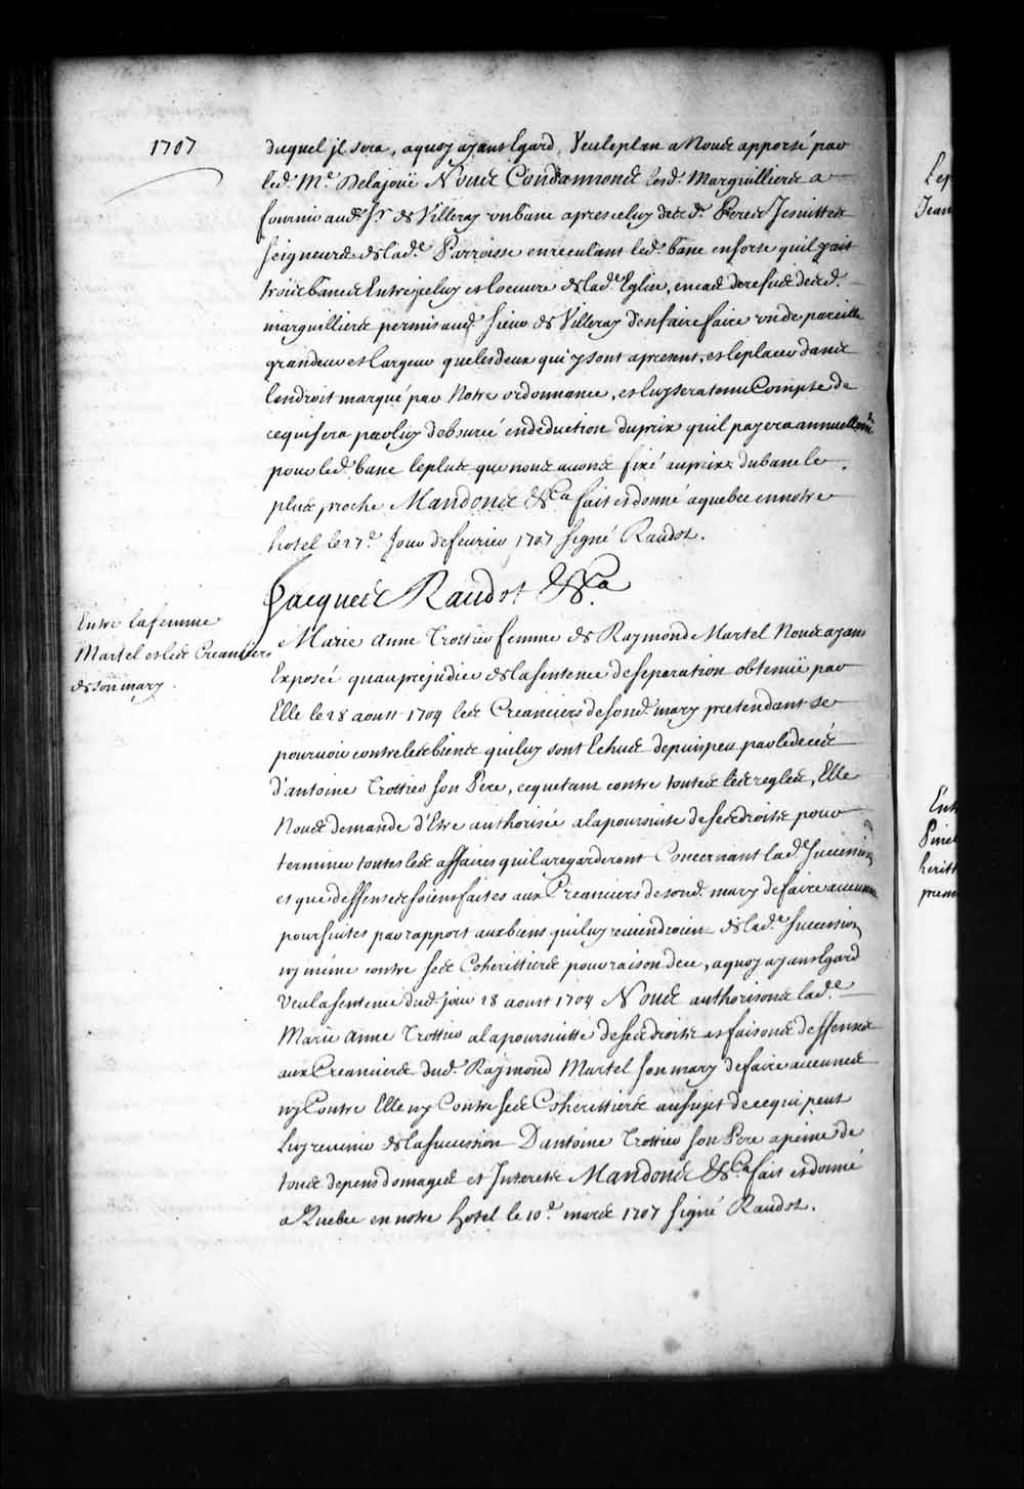 1707
duquel jl sera, aquoy ayant Egard, Veu leplan a Nous apporté par
led. Me. Delajoüe Nous Condamnons lesd. Marguilliers a
fournir aud. Sr. de Villeray un banc apres celuy desd. Peres Jesuittes
seigneurs de lad.e Parroisse en reculant led. banc en sorte quil y ait
trois bancs Entre jceluy et loeuure de lad.e Eglise, en cas de refus desd.
marguilliers permis aud. sieur de Villeray d'en faire faire un de pareille
grandeur et largeur que les deux qui y sont apresent, et le placer dans
lendroit marqué par Notre ordonnance, et luy sera tenu Compte de
cequi sera par luy deboursé en deduction du prix quil payera annuellemt.
pour led. banc lequel que nous auons fixé au prix du banc le
plus proche Mandons &ca fait et donné a quebec en notre
hotel le 27.e Jour de feurier 1707 signé Raudot.
Jacques Raudot &ca
Entre la femme
Martel et les Creanciers
de son mary.
Marie Anne Trottier femme de Raymond Martel Nous ayant
Exposé qu'au prejudice de la sentence de separation obtenuë par
Elle le 28 aoust 1704 les Creanciers de sond. mary pretendant se
pouruoir contre les biens qui luy sont Echus depuis peu par le decés
d'antoine Trottier son Pere, cequi etant contre toutes les regles, Elle
Nous demande d'Etre authorisée a la poursuite de ses droits pour
terminer toutes les affaires qui la regarderont Concernant lad.e succession
et que deffenses soient faites aux Creanciers de sond. mary de faire aucunes
poursuites par rapport aux biens qui luy reuiendroient de lad.e succession
ny même contre ses Coherittiers pour raison dece, aquoy ayant Egard
Veu la sentence dud. jour 28 aoust 1704 Nous authorisons lad.e
Marie Anne Trottier a la poursuitte de ses droits et faisons deffenses
aux Creanciers dud. Raymond Martel son mary de faire aucunes
ny Contre Elle ny Contre ses Coherittiers au sujet de cequi peut
luy reuenir de la succession D'antoine Trottier son Pere a peine de
tous depens domages et Interets Mandons &ca fait et donné
a Quebec en notre hotel le 10.e mars 1707 signé Raudot.
Jean